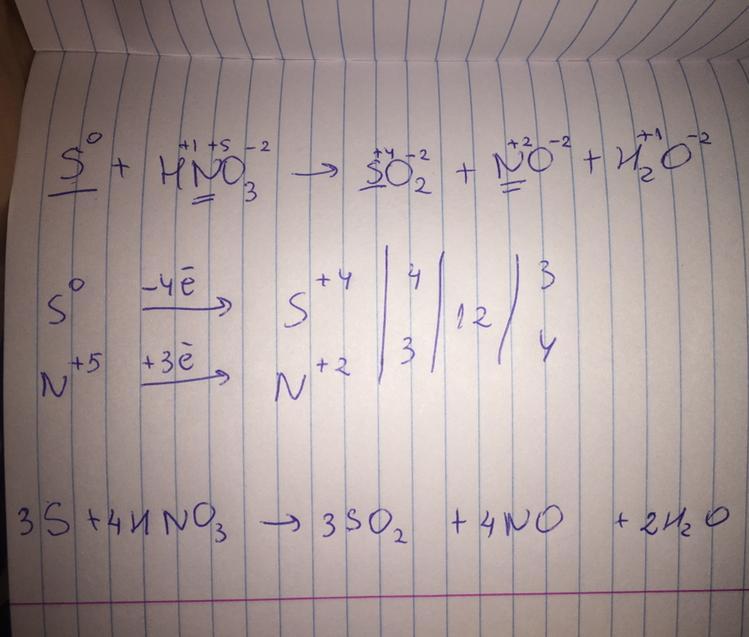 S⁰ + H⁺¹N⁺⁵O₃⁻² → S⁺⁴O₂⁻² + N⁺²O⁻² + H₂⁺¹O⁻²
S⁰ −4ē → S⁺⁴ | 4 | 12 | 3
N⁺⁵ +3ē → N⁺² | 3 | | 4
3S + 4HNO₃ → 3SO₂ + 4NO + 2H₂O